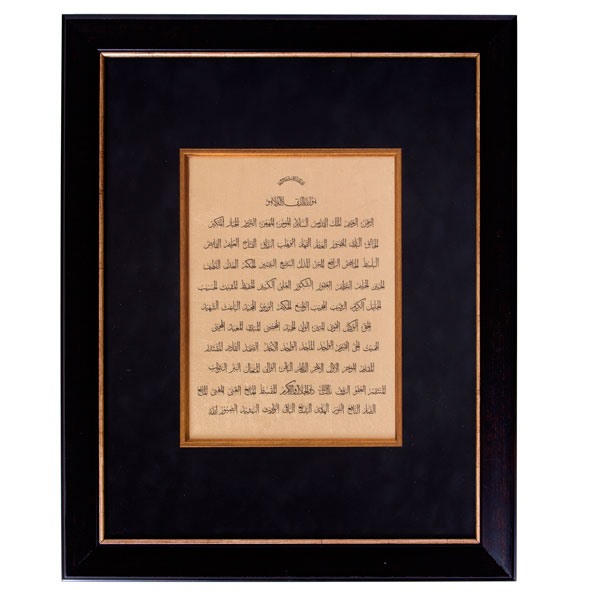 بسم الله الرحمن الرحيم
هو الله الذي لا إله إلا هو
الرحمن الرحيم الملك القدوس السلام المؤمن المهيمن العزيز الجبار المتكبر
الخالق البارئ المصور الغفار القهار الوهاب الرزاق الفتاح العليم القابض
الباسط الخافض الرافع المعز المذل السميع البصير الحكم العدل اللطيف
الخبير الحليم العظيم الغفور الشكور العلي الكبير الحفيظ المقيت الحسيب
الجليل الكريم الرقيب المجيب الواسع الحكيم الودود المجيد الباعث الشهيد
الحق الوكيل القوي المتين الولي الحميد المحصي المبدئ المعيد المحيي
المميت الحي القيوم الواجد الماجد الواحد الأحد الصمد القادر المقتدر
المقدم المؤخر الأول الآخر الظاهر الباطن الوالي المتعال البر التواب
المنتقم العفو الرؤوف مالك الملك ذو الجلال والإكرام المقسط الجامع الغني المغني المانع
الضار النافع النور الهادي البديع الباقي الوارث الرشيد الصبور